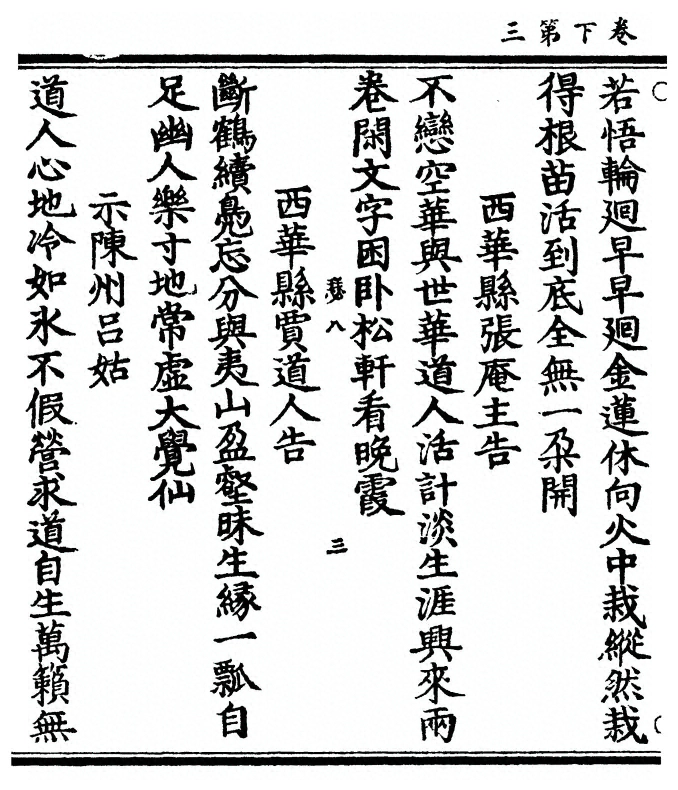 卷下第三
若悟輪廻早早廻金蓮休向火中栽縱然栽
得根苗活到底全無一朶開
西華縣張庵主告
不戀空華與世華道人活計淡生涯興來兩
卷閑文字困卧松軒看晚霞
八
三
西華縣賈道人告
斷鶴續鳧忘分與夷山盈壑昧生緣一瓢自
足幽人樂寸地常虛大覺仙
示陳州呂姑
道人心地冷如氷不假營求道自生萬籟無